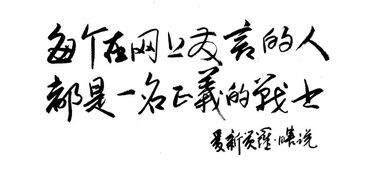 每个在网上发言的人
都是一名正義的战士
爱新觉羅·瞎说